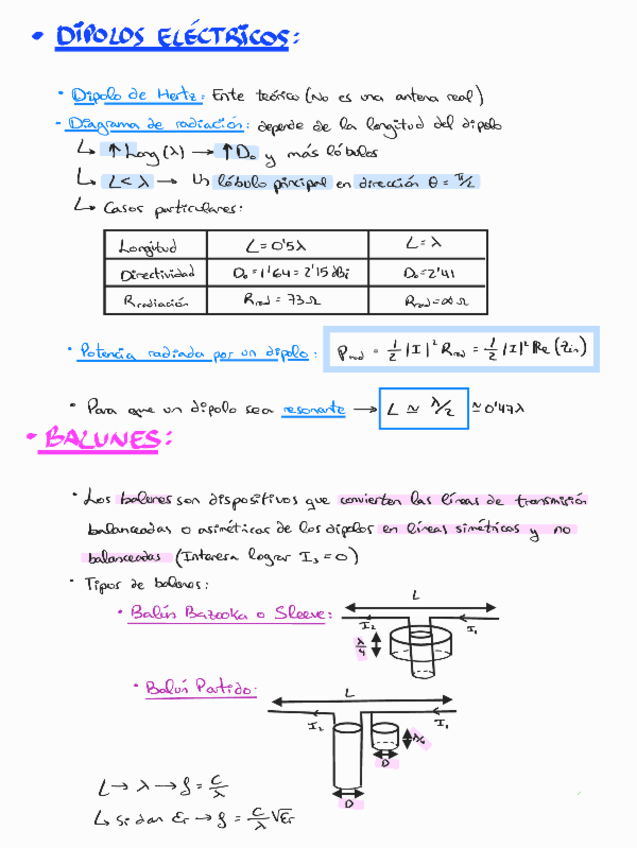 • DIPOLOS ELÉCTRICOS:
• Dipolo de Hertz: Ente teórico (No es una antena real)
• Diagrama de radiación: depende de la longitud del dipolo
↳ ↑ Long (λ) → ↑ D₀ y más lóbulos
↳ L < λ → Un lóbulo principal en dirección θ = π/2
↳ Casos particulares:
Longitud L = 0'5λ L = λ
Directividad D₀ = 1'64 = 2'15 dBi D₀ = 2'41
Rradiación Rrad = 73 Ω Rrad = ∞ Ω
• Potencia radiada por un dipolo: Prad = 1/2 |I|² Rrad = 1/2 |I|² Re (Zin)
• Para que un dipolo sea resonante → L ≃ λ/2 ≃ 0'47λ
• BALUNES:
• Los balunes son dispositivos que convierten las líneas de transmisión
balanceadas o asimétricas de los dipolos en líneas simétricas y no
balanceadas (Interesa lograr I₃ = 0)
• Tipos de balunes:
• Balún Bazooka o Sleeve:
L
I₂ I₁
λ/4
• Balún Partido:
L
I₂ I₁
λ/4
D
D
L → λ → f = c/λ
↳ Si dan εr → f = c/λ √εr